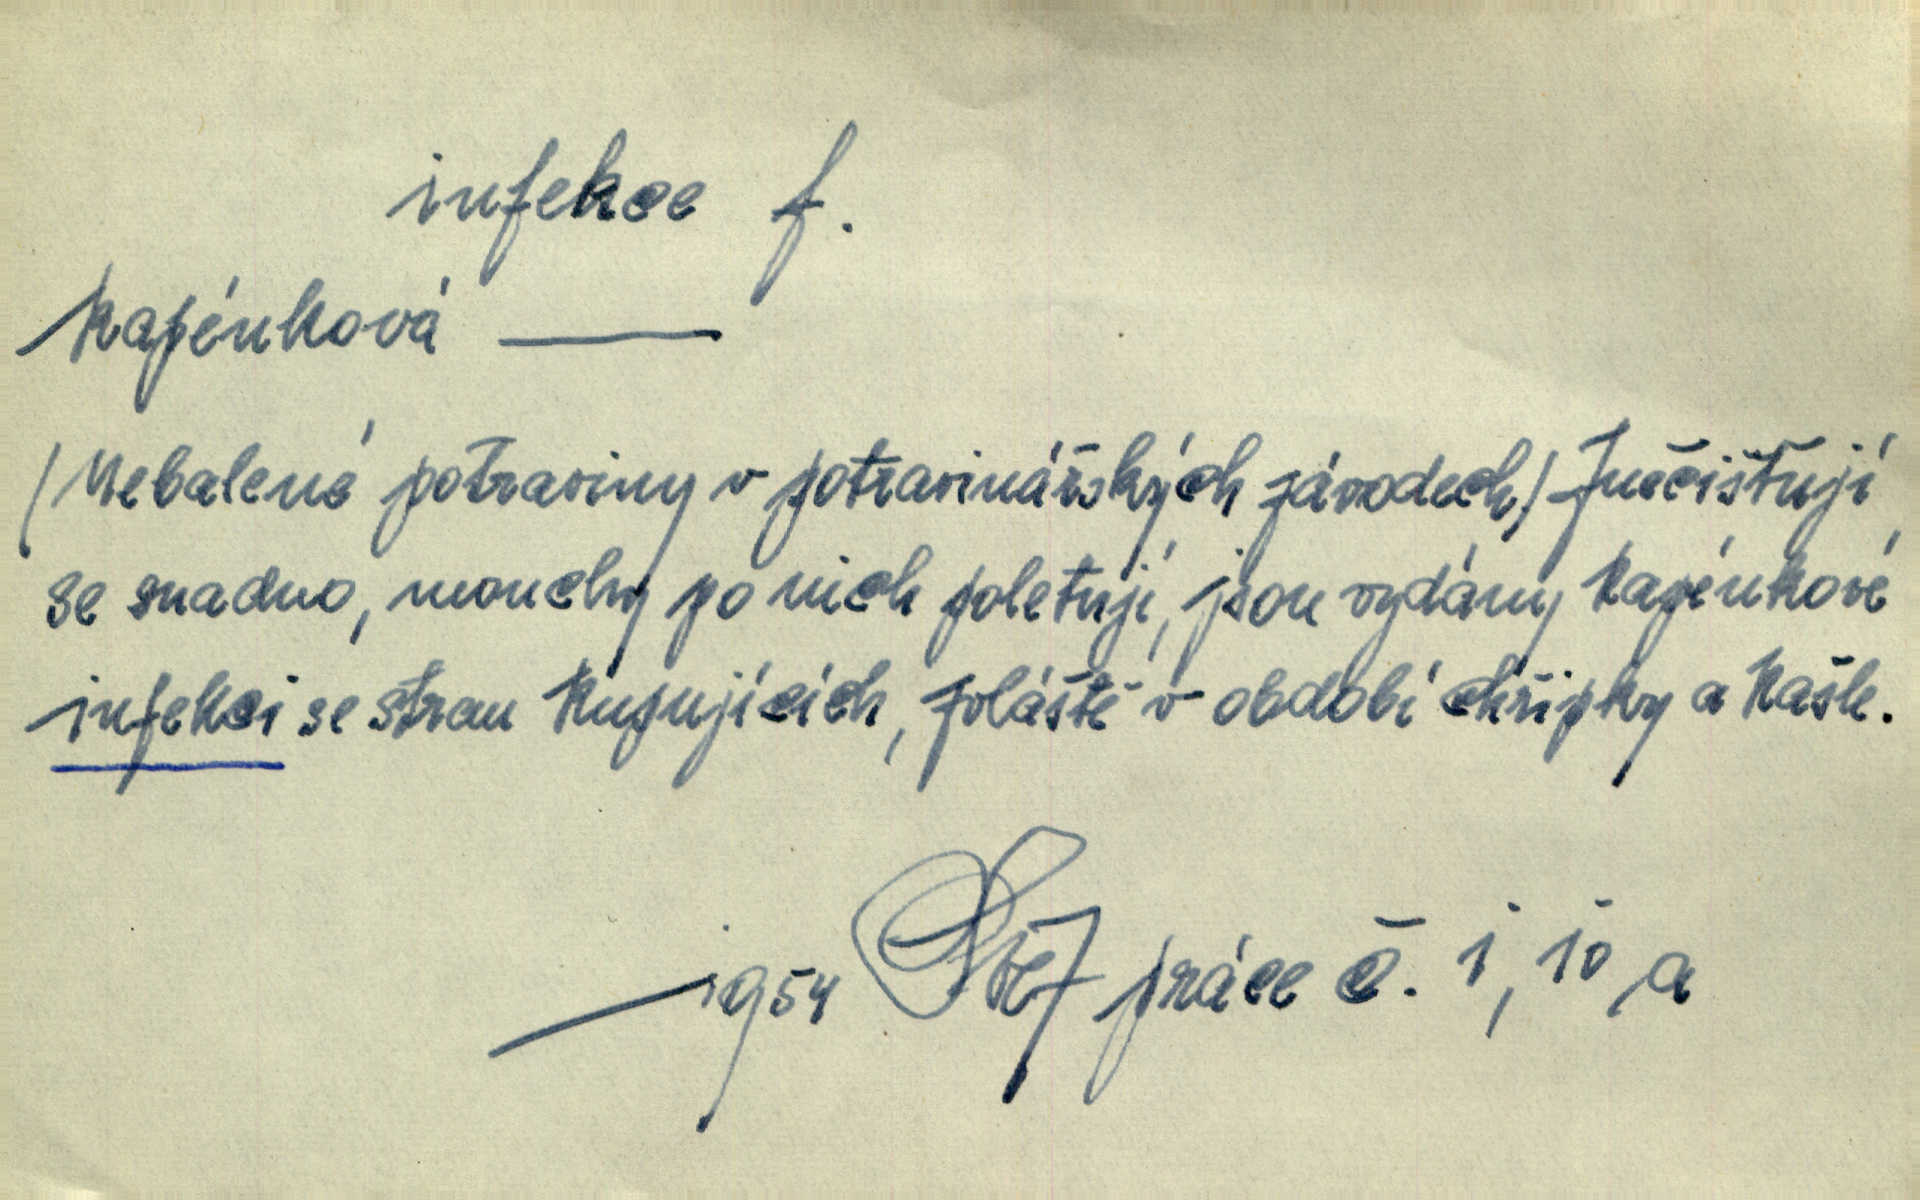 infekce f.
kapénková ——
(Nebalené potraviny v potravinářských závodech) Znečišťují
se snadno, mouchy po nich poletují, jsou vydány kapénkové
infekci se stran kupujících, zvláště v období chřipky a kašle.
1954 práce č. 1, 10 a